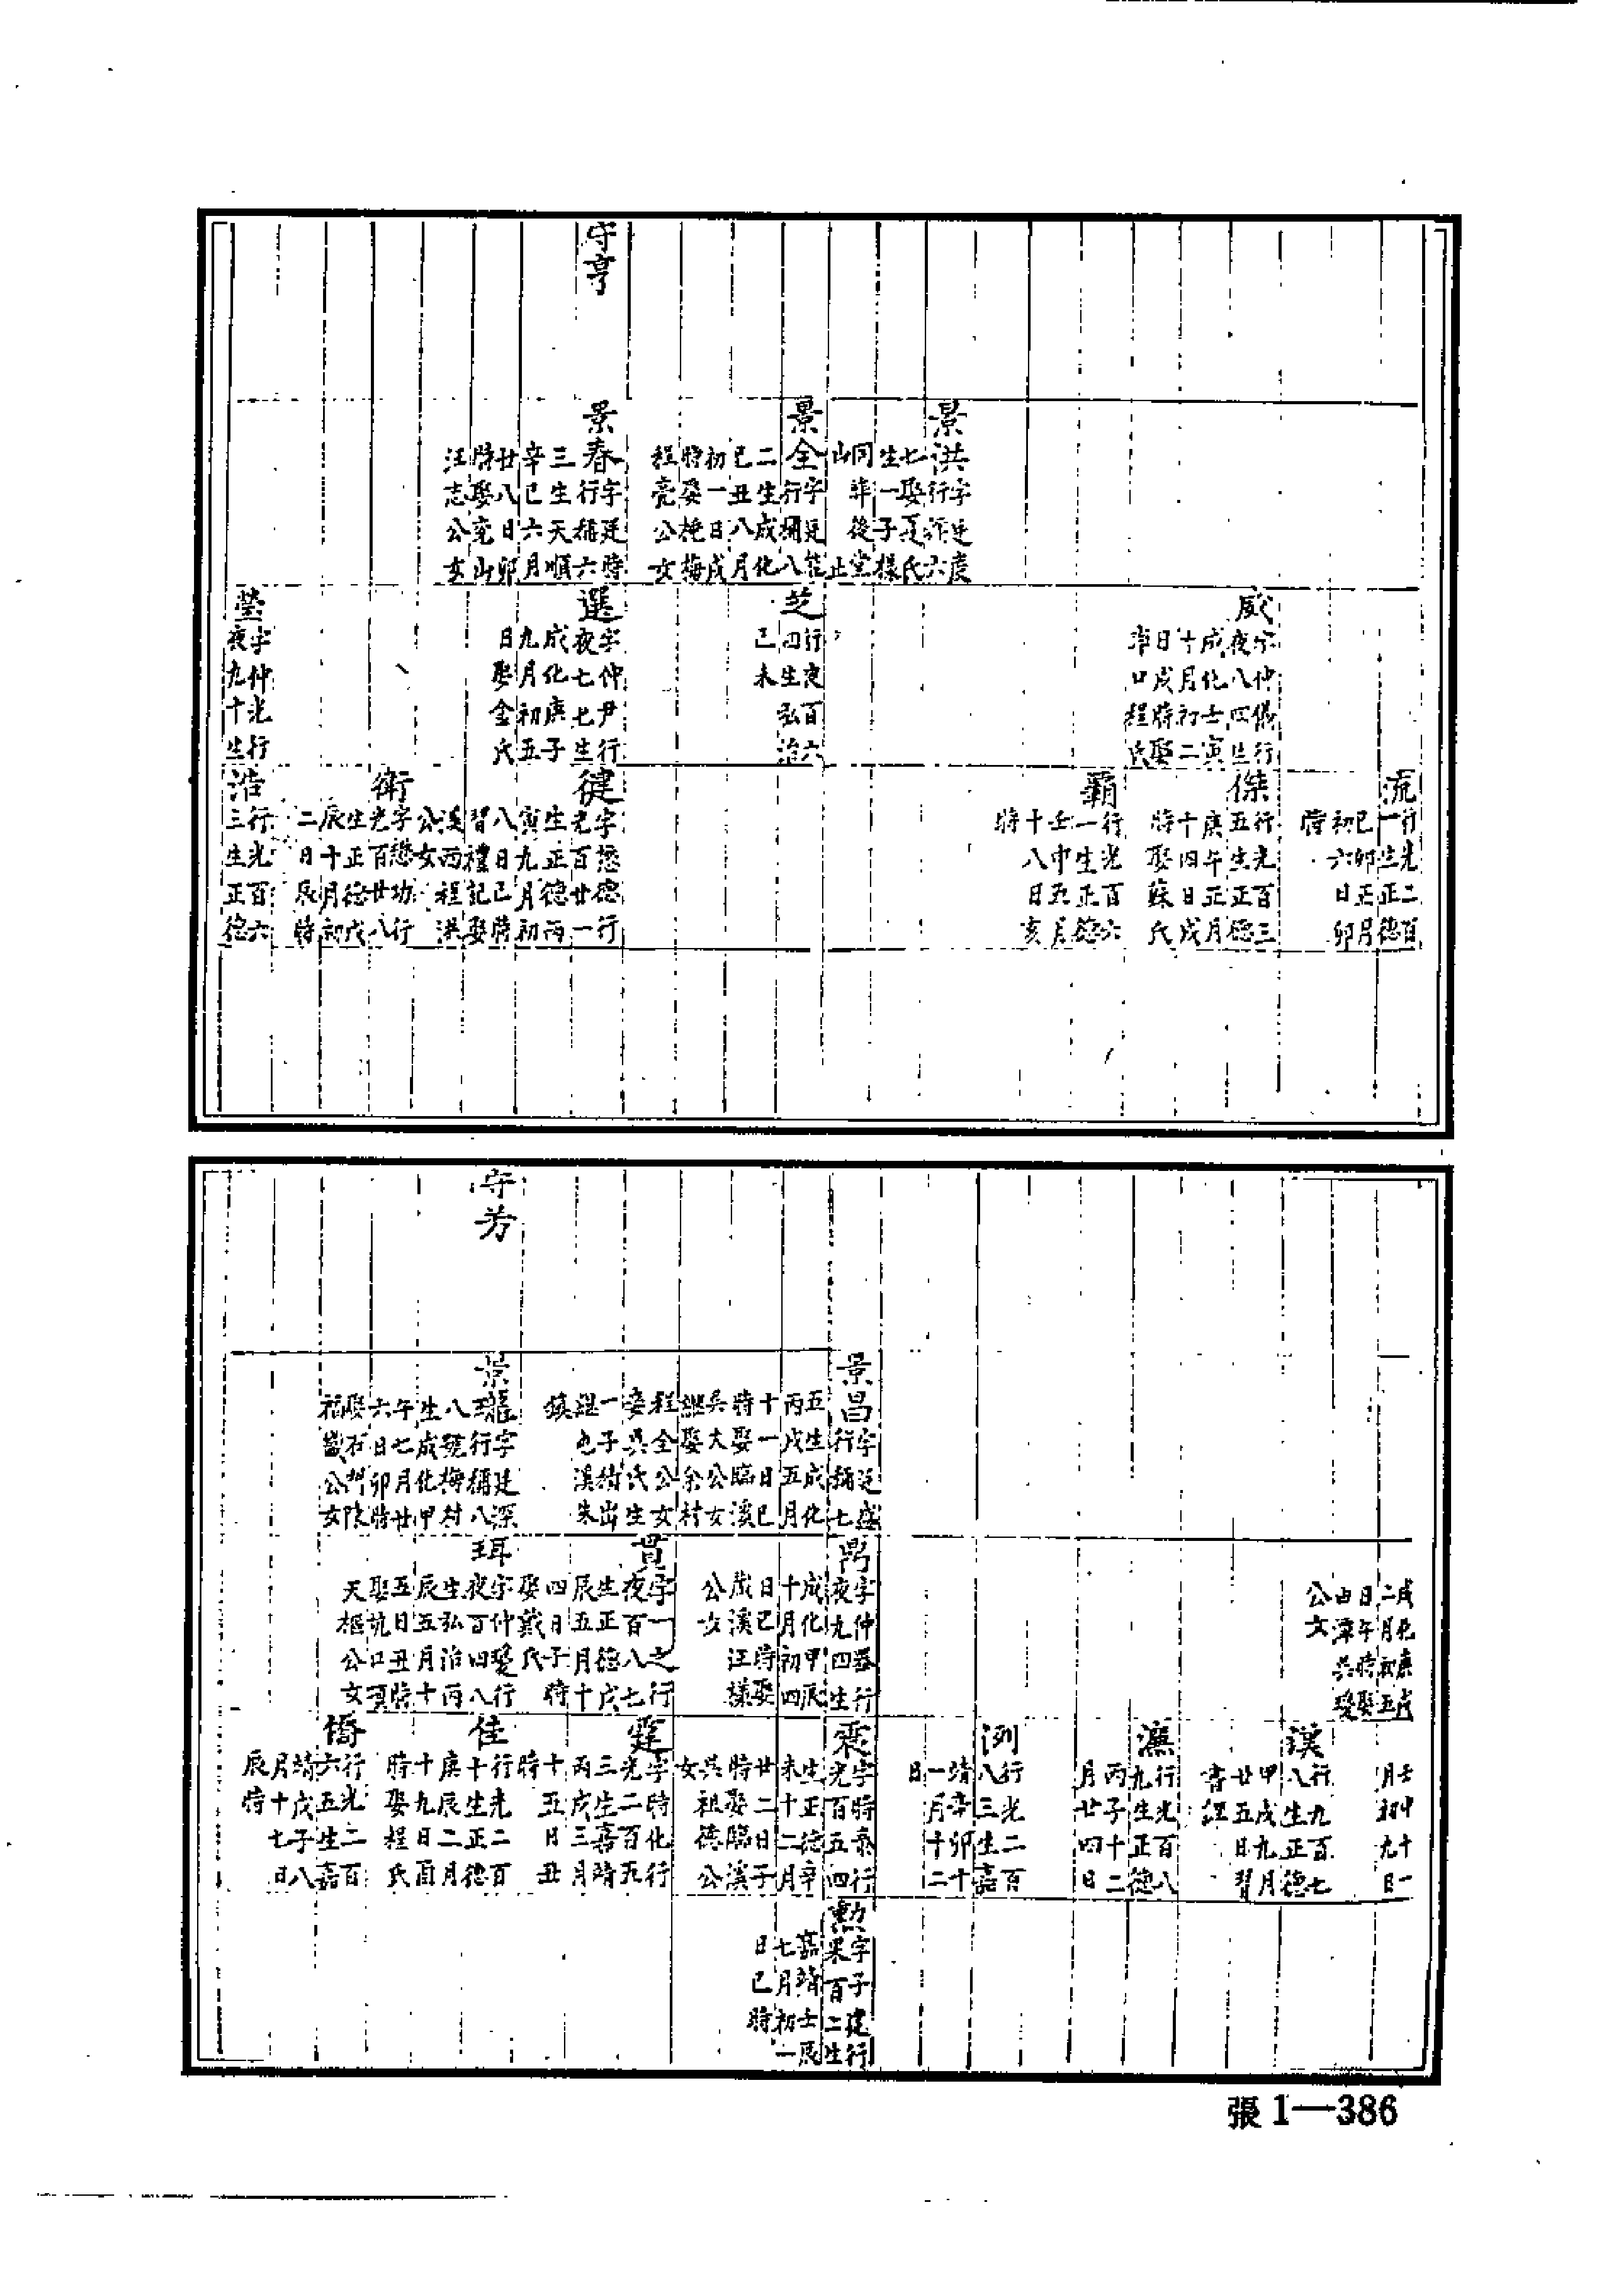 守亨
景洪
字廷度
行稱六
七娶夏氏
生一子樣
同葬後堂
山止
景全
字廷能
行稱八
二生成化
己丑八月
初一日戌
時娶梅
程亮公女
景春
字廷時
行稱六
三生天順
辛巳六月
廿八日卯
時娶兖山
汪志公女
威
字仲儀行
夜八四生
成化壬寅
十月初二
日戌時娶
率口程氏
芝
行夜百六
四生弘治
己未
選
字仲尹行
夜七七生
成化庚子
九月初五
日娶金氏
瑩
字仲光行
夜九十生
流
行光二百
一生正德
己卯正月
初六日卯
時
傑
行光百三
五生正德
庚午正月
十四日戌
時娶蘇氏
霸
行光百六
一生正德
壬申五月
十八日亥
時
健
字懋德行
光百廿一
生正德丙
寅九月初
八日巳時
習禮記娶
溪西程洪
公女
衛
字懋功行
光百廿八
生正德戊
辰十月初
二日辰時
浩
行光百六
三生正德
守芳
景昌
字廷盛
行稱七
五生成化
丙戌五月
十一日巳
時娶臨溪
吳大公女
繼娶余村
程全公女
妾吳氏生
一子績出
繼邑溪朱
鎮
景瓏
字廷深
行稱八
八號梅村
生成化甲
午七月廿
六日卯時
娶石門陳
福歲公女
成化庚戌
二月初五
日午時娶
由潭吳璦
公女
鼎
字仲器行
夜九四生
成化甲辰
十月初四
日巳時娶
嵗溪汪樣
公女
貫
字一之行
夜百八七
生正德戊
辰五月十
四日子時
娶戴氏
珥
字仲璧行
夜百四八
生弘治丙
辰五月十
五日丑時
娶坑口項
天樞公女
壬申十一
月初九日
漢
行九百七
八生正德
甲戌九月
廿五日習
書經
濂
行光百八
九生正德
丙子十二
月廿四日
洌
行光二百
八三生嘉
靖辛卯十
一月十二
日
霂
字時泰行
光百五四
生正德辛
未十二月
廿二日子
時娶臨溪
吳祖德公
女
霆
字時化行
光二百五
三生嘉靖
丙戌三月
十五日丑
時
佳
行光二百
十生正德
庚辰二月
十九日酉
時娶程氏
僑
行光二百
六五生嘉
靖戊子八
月十七日
辰時
勲
字子建行
果百二生
嘉靖壬辰
七月初一
日巳時
張1—386